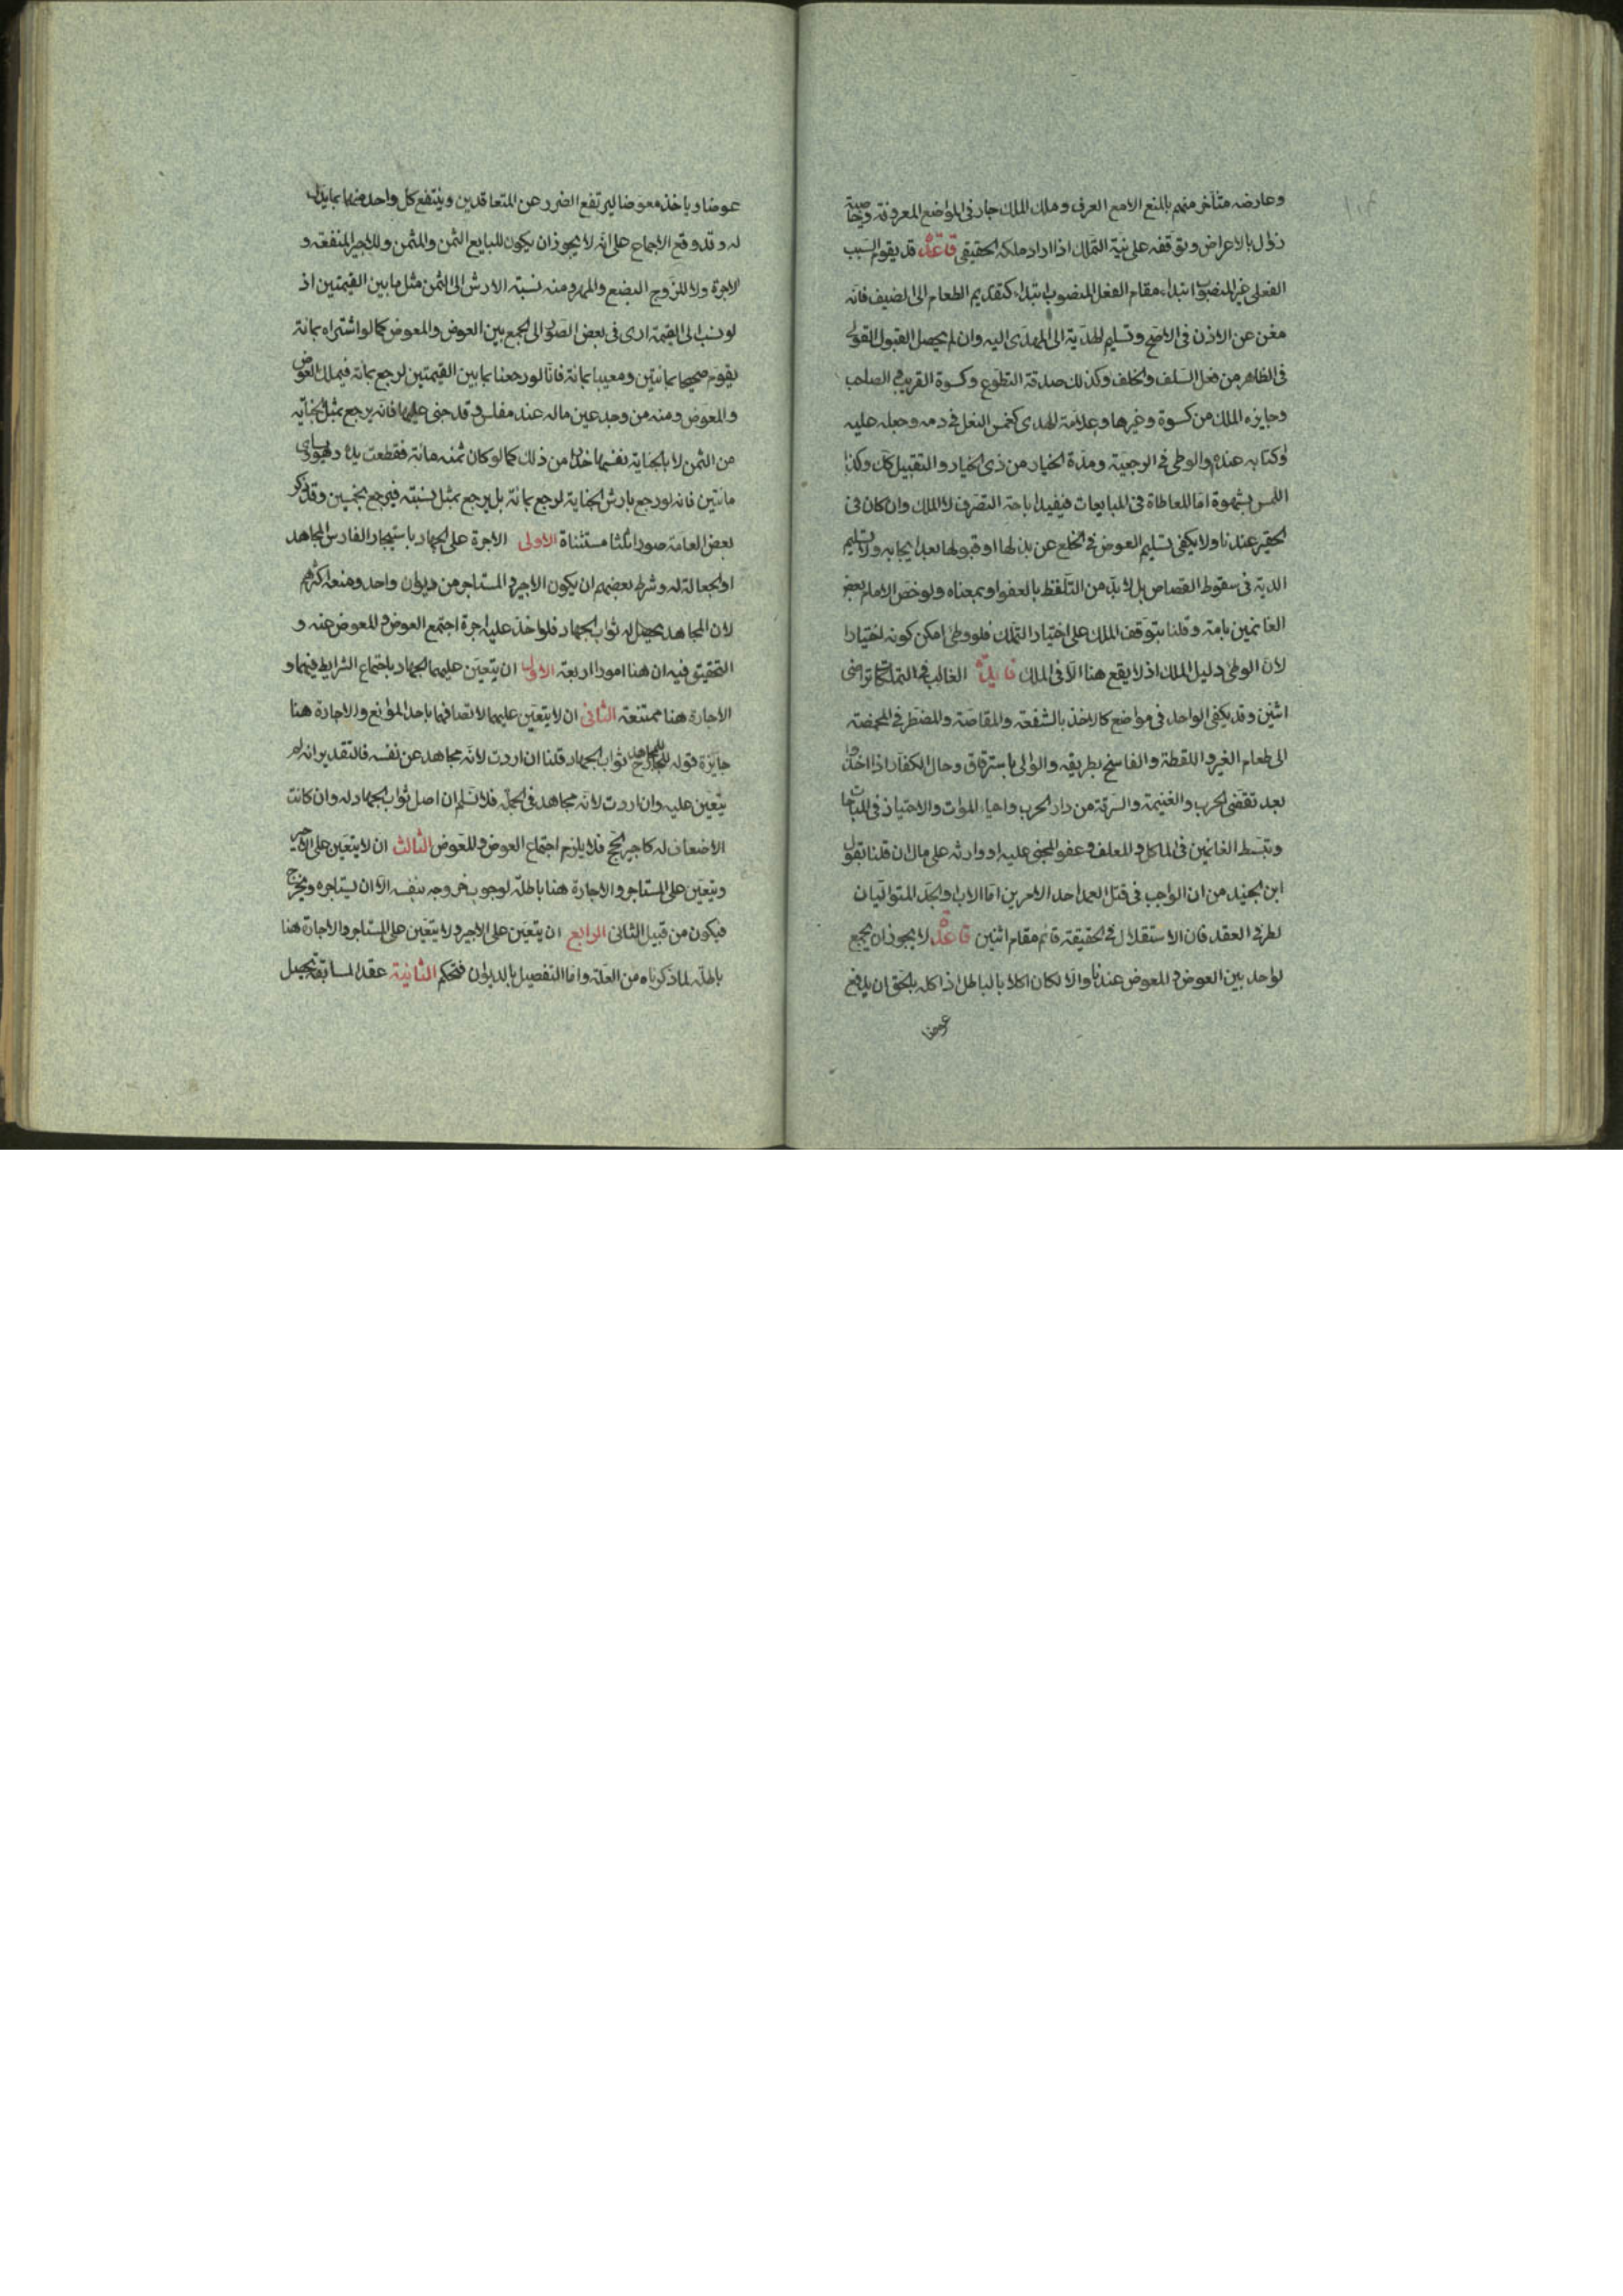 وعارضه متأخر منهم بالمنع الامع العرف وملك الملك جار في المواضع المعروفة وخاصية
زوال بالاعراض وتوقفه على نية التملك اذا اراد ملكه الحقيقي قاعدة قد يقوم السبب
الفعلي غير المنصوب ابتداء مقام الفعل المنصوب ابتداء كتقديم الطعام الى الضيف فانه
مغن عن الاذن في الاصح وتسليم الهدية الى المهدى اليه وان لم يحصل القبول القولي
في الظاهر من فعل السلف والخلف وكذلك صدقة التطوع وكسوة القريب والصاحب
وجايزه الملك من كسوة وغيرها وعلامة الهدى كغمس النعل في دمه وجعله عليه
او كتابه عنده والوطى في الرجعية ومدة الخيار من ذى الخيار والتقبيل كك وكذا
اللمس بشهوة اما المعاطاة في المبايعات فيفيد اباحة التصرف لا الملك وان كان في
الحقير عندنا ولا يكفى تسليم العوض في الخلع عن بذلها او قبولها بعد ايجابه ولا تسليم
الدية في سقوط القصاص بل لابد من التلفظ بالعفو او بمعناه ولو خص الامام بعض
الغانمين بامة وقلنا بتوقف الملك على اختيار التملك فلو وطئ امكن كونه اختيارا
لان الوطئ دليل الملك اذ لا يقع هنا الا في الملك فايدة الغالب في التملكات تراضى
اثنين وقد يكفى الواحد في مواضع كالاخذ بالشفعة والمقاصة والمضطر في المخمصة
الى طعام الغير واللقطة والفاسخ بطريقه والوالي باسترقاق وحال الكفار اذا اخذوا
بعد تقضى الحرب والغنيمة والسرقة من دار الحرب واحياء الموات والاحتياز في المباحات
وتبسط الغانمين في الماكل والمعلف وعفو المجنى عليه او وارثه على مال ان قلنا بقول
ابن الجنيد من ان الواجب في قتل العمد احد الامرين اما الاب والجد المتوليان
لطرفي العقد فان الاستقلال في الحقيقة قائم مقام اثنين قاعدة لا يجوز ان يجمع
لواحد بين العوض والمعوض عندنا والا لكان اكلا بالباطل اذ اكله بالحق ان يدفع
عوضا
عوضا وياخذ معوضا ليرتفع الضرر عن المتعاقدين وينتفع كل واحد منهما بما يدل
له وقد وقع الاجماع على انه لا يجوز ان يكون للبايع الثمن والمثمن وللاجير المنفعة و
الاجرة ولا للزوج البضع والمهر ومنه نسبة الارش الى الثمن مثل ما بين القيمتين اذ
لو نسب الى القيمة ادى في بعض الصور الى الجمع بين العوض والمعوض كما لو اشتراه بمائة
يقوم صحيحا بمائتين ومعيبا بمائة فانا لو رجعنا بما بين القيمتين لرجع بمائة فيملك العوض
والمعوض ومنه من وجد عين ماله عند مفلس وقد جنى عليها فانه يرجع بمثل الجناية
من الثمن لا بالجناية نفسها حذرا من ذلك كما لو كان ثمنه مائة فقطعت يده وهو يساوى
مائتين فانه لو رجع بارش الجناية لرجع بمائة بل يرجع بمثل نسبته فيرجع بخمسين وقد ذكر
بعض العامة صورا ثلثا مستثناة الاولى الاجرة على الجهاد باستيجار الفارس المجاهد
او الجعالة له وشرط بعضهم ان يكون الاجير والمستاجر من ديوان واحد ومنعه اكثرهم
لان المجاهد يحصل له ثواب الجهاد فلو اخذ عليه اجرة اجتمع العوض والمعوض عنه و
التحقيق فيه ان هنا امورا اربعة الاول ان يتعين عليهما الجهاد باجتماع الشرايط فيهما و
الاجارة هنا ممتنعة الثاني ان لا يتعين عليهما لاتصافهما باحد الموانع والاجارة هنا
جايزة قوله للمجاهد ثواب الجهاد قلنا ان اردت لانه مجاهد عن نفسه فالتقدير انه لم
يتعين عليه وان اردت لانه مجاهد في الجملة فلا نسلم ان اصل ثواب الجهاد له وان كانت
الاضعاف له كاجير الحج فلا يلزم اجتماع العوض والمعوض الثالث ان لا يتعين على الاجير
ويتعين على المستاجر والاجارة هنا باطلة لوجوب خروجه بنفسه الا ان يستاجره ويخرج
فيكون من قبيل الثاني الرابع ان يتعين على الاجير ولا يتعين على المستاجر والاجارة هنا
باطلة لما ذكرناه من العلة واما التفصيل بالديوان فتحكم الثانية عقد المسابقة يحصل